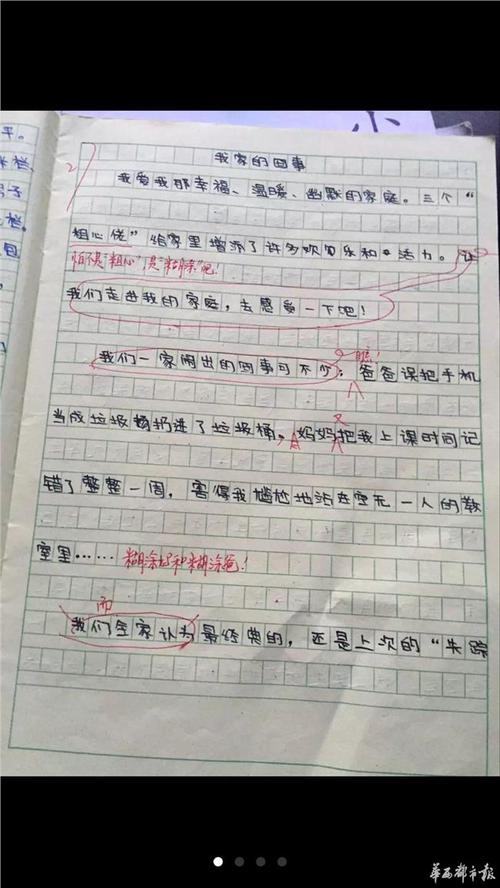 平。
小
栏
子
栏
包
2
我家的囧事
我爱我那幸福、温暖、幽默的家庭。三个“
粗心佬”给家里增添了许多欢乐和活力。让
怕不是“粗心”，是“糊涂”吧！
我们走进我的家庭，去感受一下吧！
瞧！
我们一家闹出的囧事可不少：爸爸误把手机
又
当成垃圾扔进了垃圾桶，妈妈把我上课时间记
错了整整一周，害得我尴尬地站在空无一人的教
室里……糊涂妈和糊涂爸！
而
我们全家认为最经典的，还是上次的“失踪
华西都市报